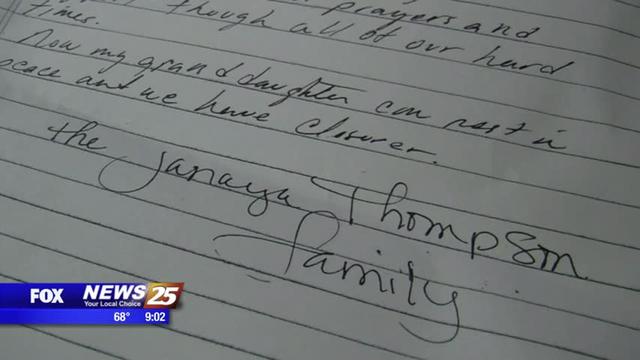 prayers and
though all of our hard
times.
Now my grand daughter can rest in
peace and we have closurer.
the Janaya Thompson
family
FOX NEWS 25
Your Local Choice
68° 9:02